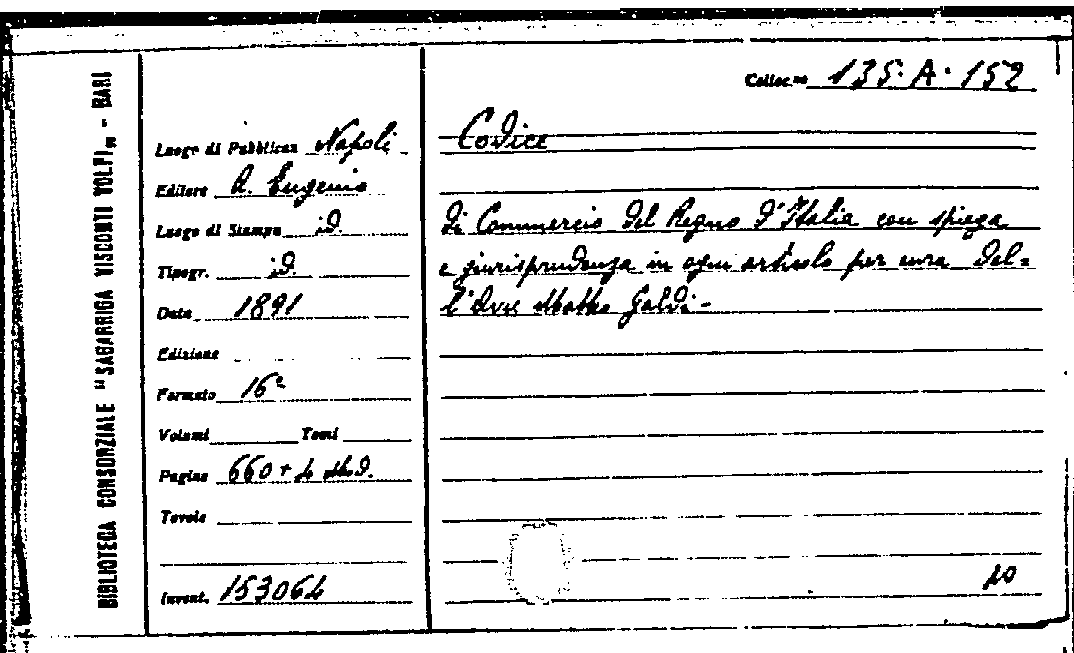 BIBLIOTECA CONSORZIALE "SAGARRIGA VISCONTI VOLPI„ - BARI
Colloc.ne 135. A. 152
Luogo di Pubblicaz Napoli
Editore A. Eugenio
Luogo di Stampa id.
Tipogr. id.
Data 1891
Edizione
Formato 16°
Volumi Tomi
Pagine 660 + 4
Tavole
Invent. 153064
Codice
di Commercio del Regno d'Italia con spiega
e giurisprudenza in ogni articolo per cura del=
l'Avv. Matteo Galdi -